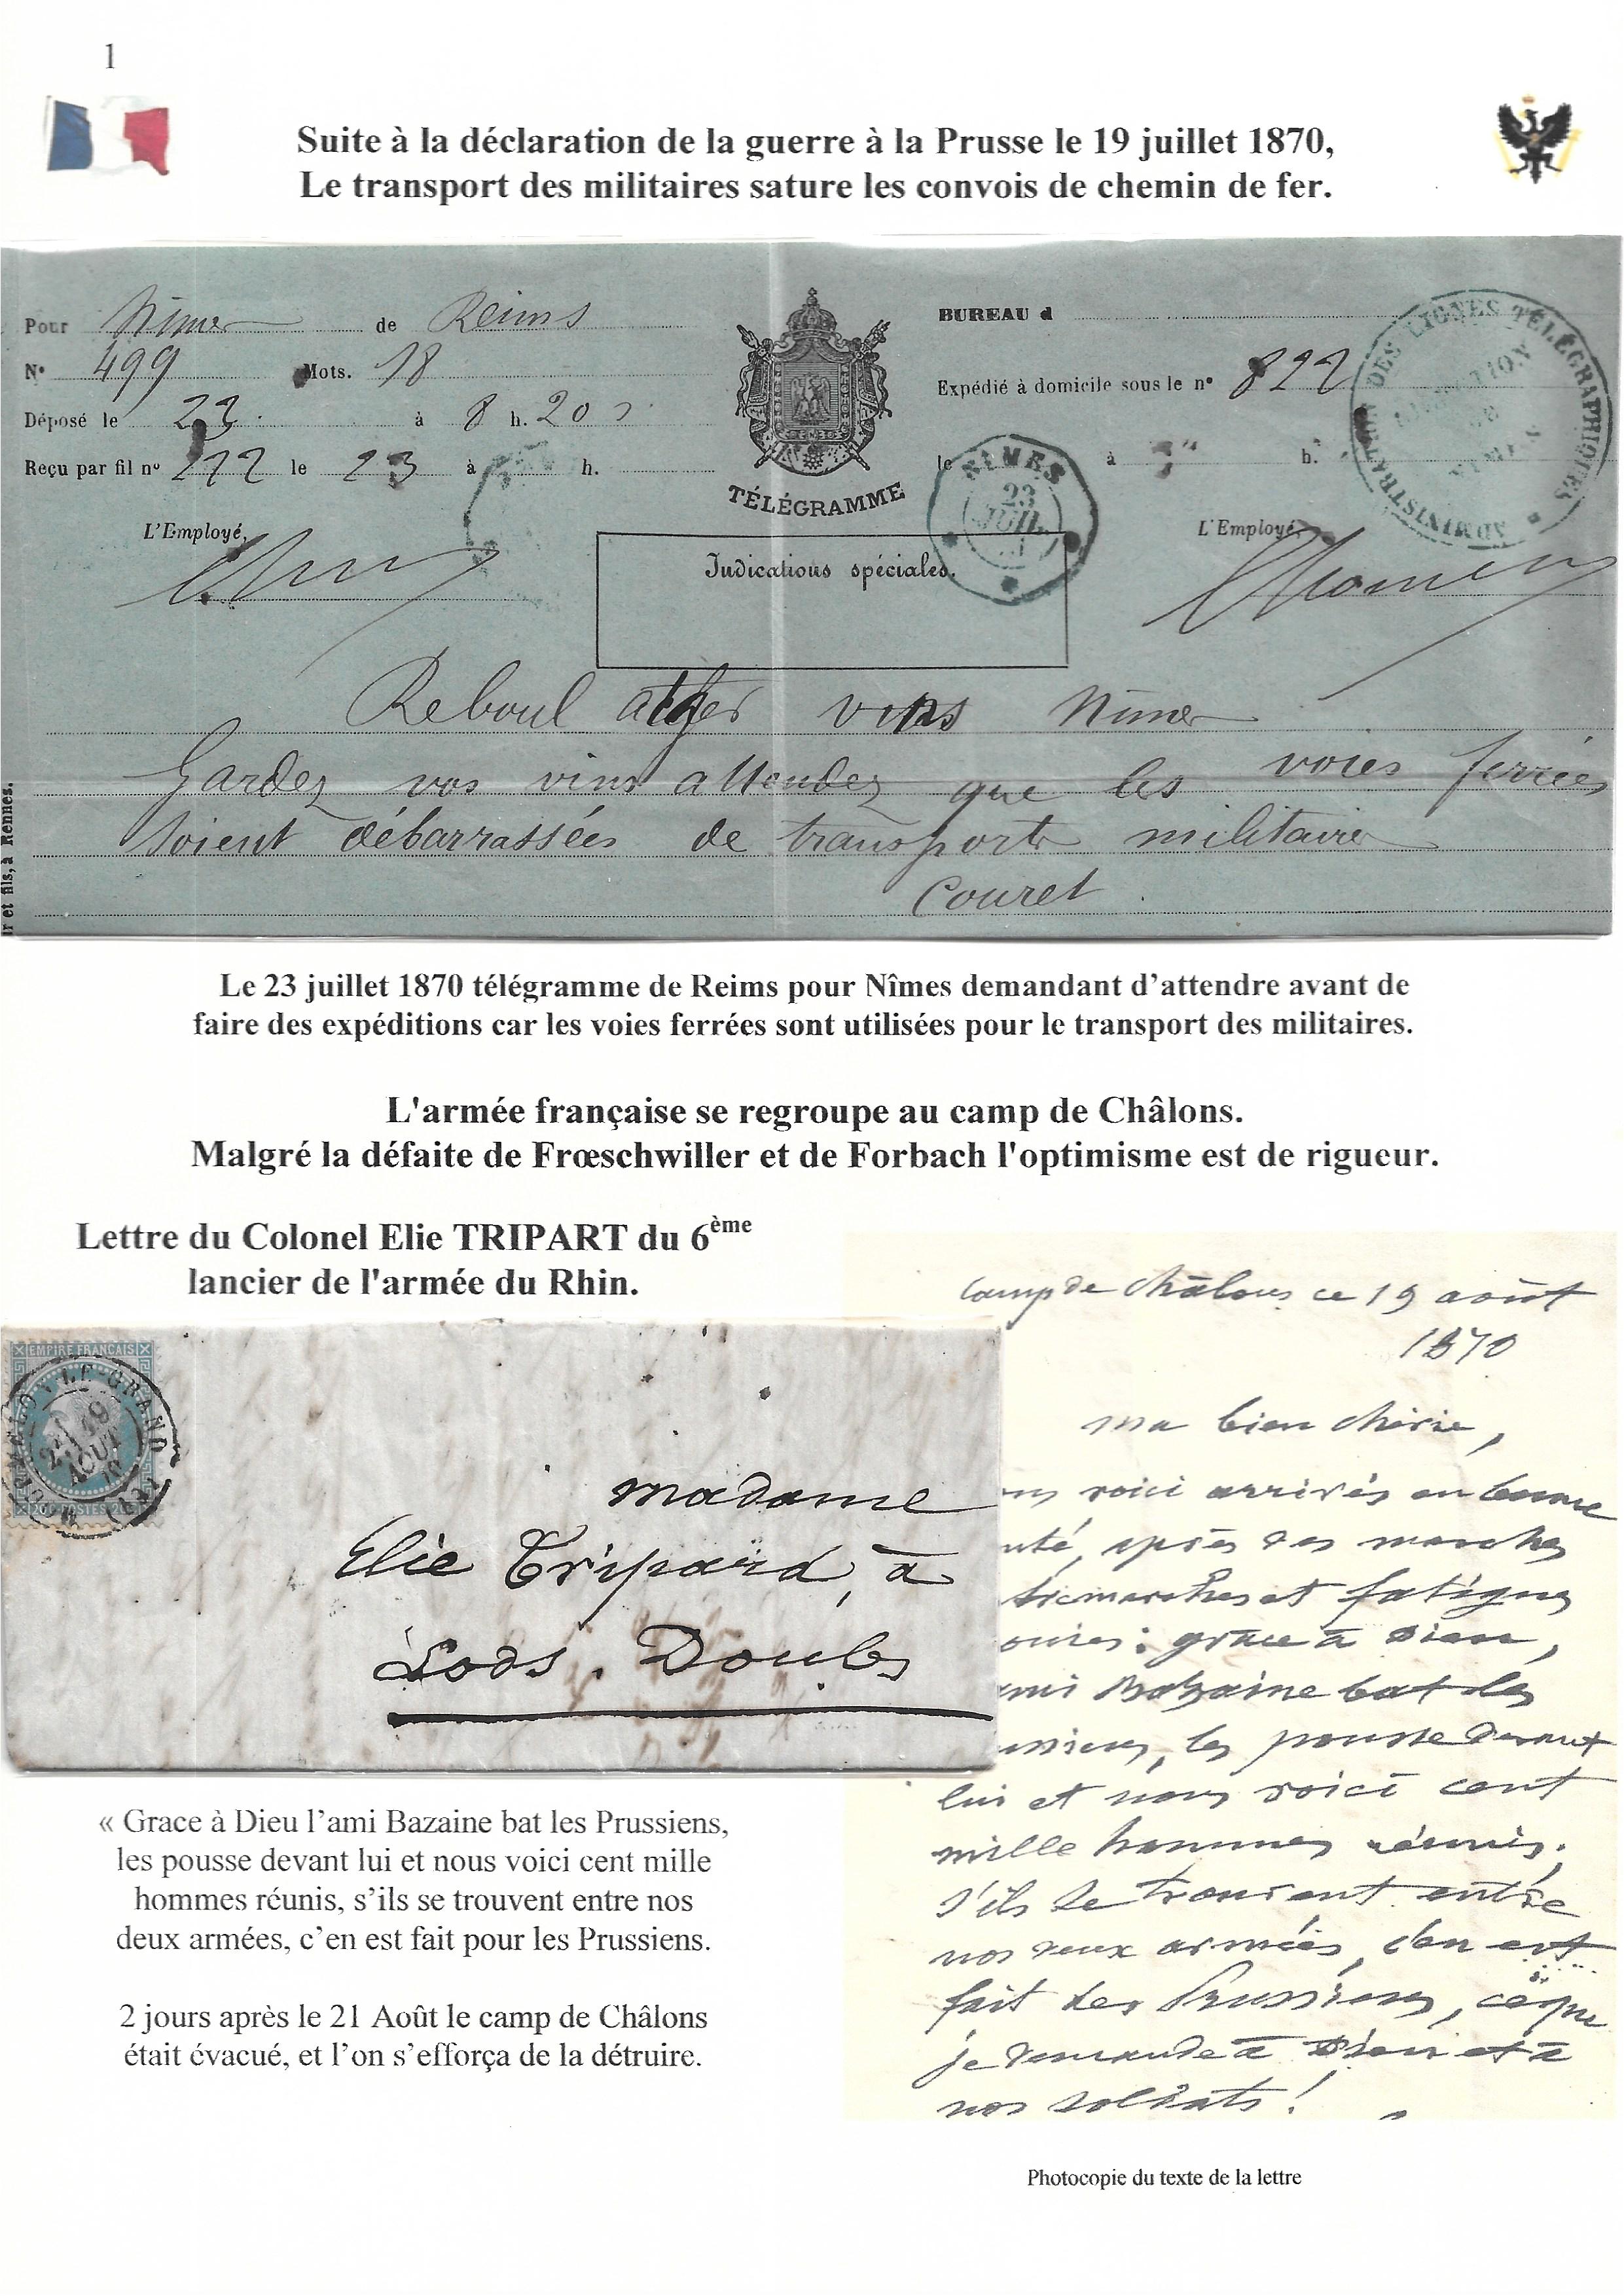 1
Suite à la déclaration de la guerre à la Prusse le 19 juillet 1870,
Le transport des militaires sature les convois de chemin de fer.
Pour Nimes de Reims
N° 499 Mots. 18
Déposé le 23 à 8 h. 20
Reçu par fil n° 212 le 23 à h.
L'Employé,
TÉLÉGRAMME
Indications spéciales.
BUREAU d
Expédié à domicile sous le n° 822
le à h.
L'Employé,
NIMES
23
JUIL.
ADMINISTRATION DES LIGNES TÉLÉGRAPHIQUES
Reboul vins Nimes
Gardez vos vins attendez que les voies ferrées
soient débarrassées de transports militaires
Couret
r et fils, à Rennes.
Le 23 juillet 1870 télégramme de Reims pour Nîmes demandant d'attendre avant de
faire des expéditions car les voies ferrées sont utilisées pour le transport des militaires.
L'armée française se regroupe au camp de Châlons.
Malgré la défaite de Frœschwiller et de Forbach l'optimisme est de rigueur.
Lettre du Colonel Elie TRIPART du 6ème
lancier de l'armée du Rhin.
EMPIRE FRANCAIS
LE-GRAND
19
AOUT
70
20c POSTES 20c
madame
Elie Tripard, à
Lods. Doubs
camp de châlons ce 19 août
1870
ma bien chérie,
voici arrivés en bonne
après des marches
et fatigues
grâce à Dieu,
Bazaine bat les
les pousse devant
lui et nous voici cent
mille hommes réunis;
s'ils se trouvent entre
nos deux armées, c'en est
fait des Prussiens, ce que
je demande à Dieu et à
nos soldats !
« Grace à Dieu l'ami Bazaine bat les Prussiens,
les pousse devant lui et nous voici cent mille
hommes réunis, s'ils se trouvent entre nos
deux armées, c'en est fait pour les Prussiens.
2 jours après le 21 Août le camp de Châlons
était évacué, et l'on s'efforça de la détruire.
Photocopie du texte de la lettre